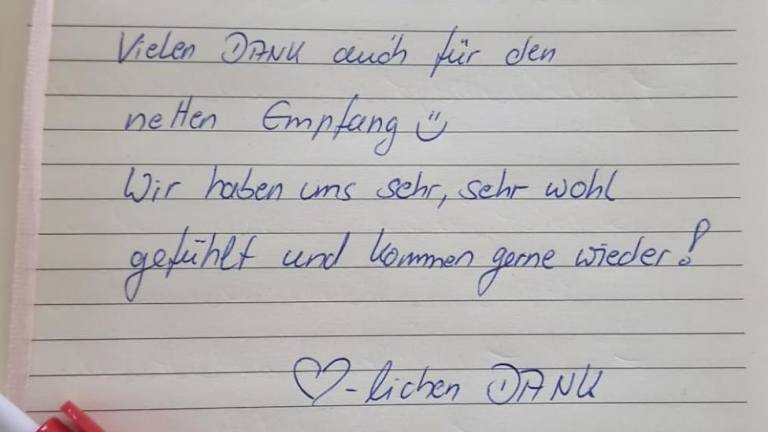 Vielen DANK auch für den
netten Empfang ☺
Wir haben uns sehr, sehr wohl
gefühlt und kommen gerne wieder!
♡-lichen DANK